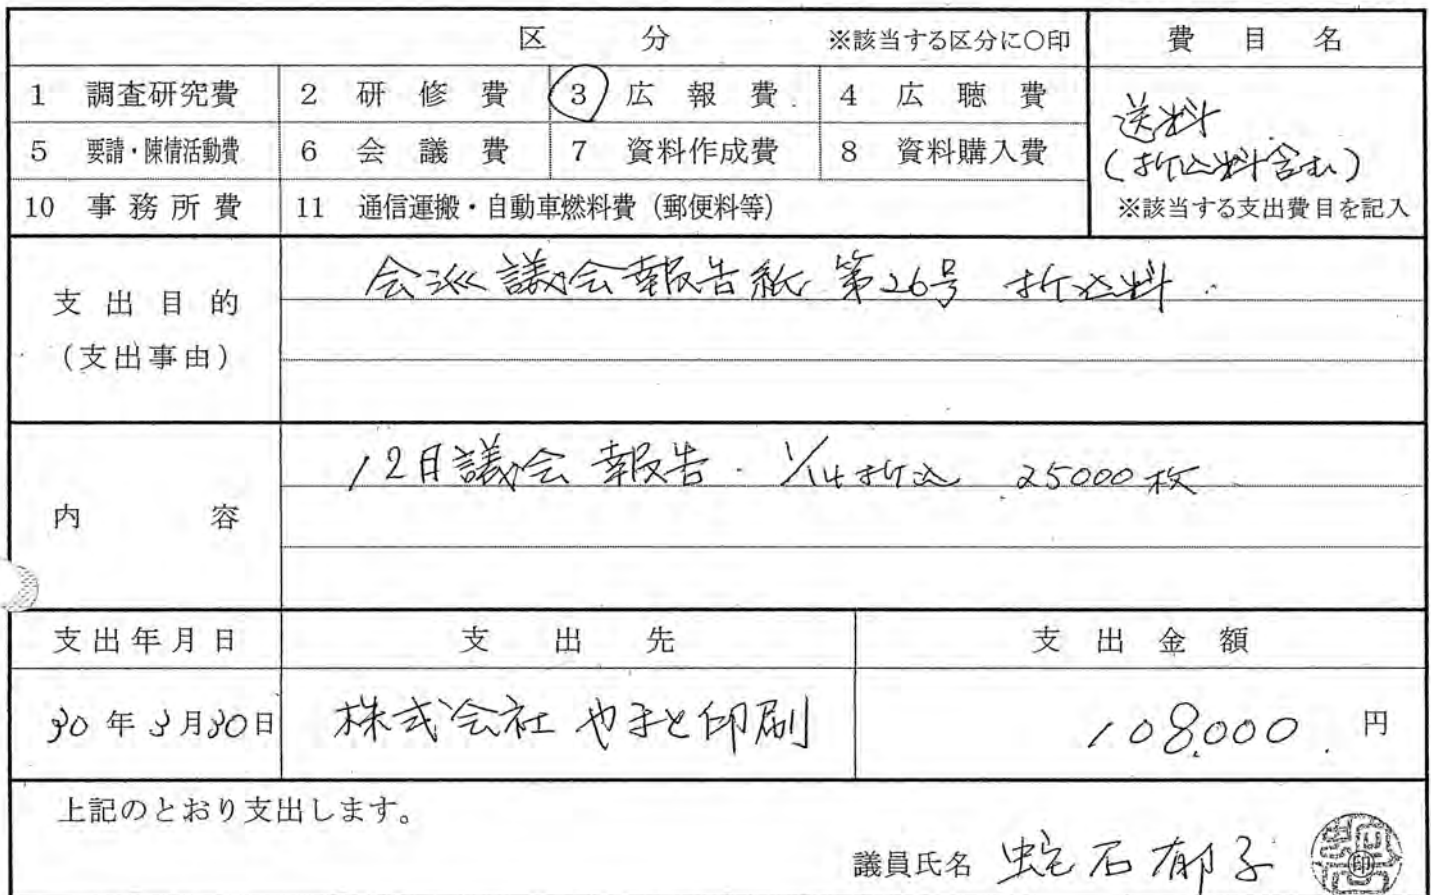 区 分 ※該当する区分に○印 費 目 名
1 調査研究費 2 研 修 費 3 広 報 費 4 広 聴 費
送料
5 要請・陳情活動費 6 会 議 費 7 資料作成費 8 資料購入費
(折込料含む)
10 事 務 所 費 11 通信運搬・自動車燃料費(郵便料等)
※該当する支出費目を記入
支 出 目 的
(支出事由)
会派 議会報告紙 第26号 折込料
内 容
12月議会 報告 1/14折込 25000枚
支出年月日 支 出 先 支 出 金 額
30年3月30日 株式会社 やまと印刷 108,000 円
上記のとおり支出します。
議員氏名 蛇石郁子 印